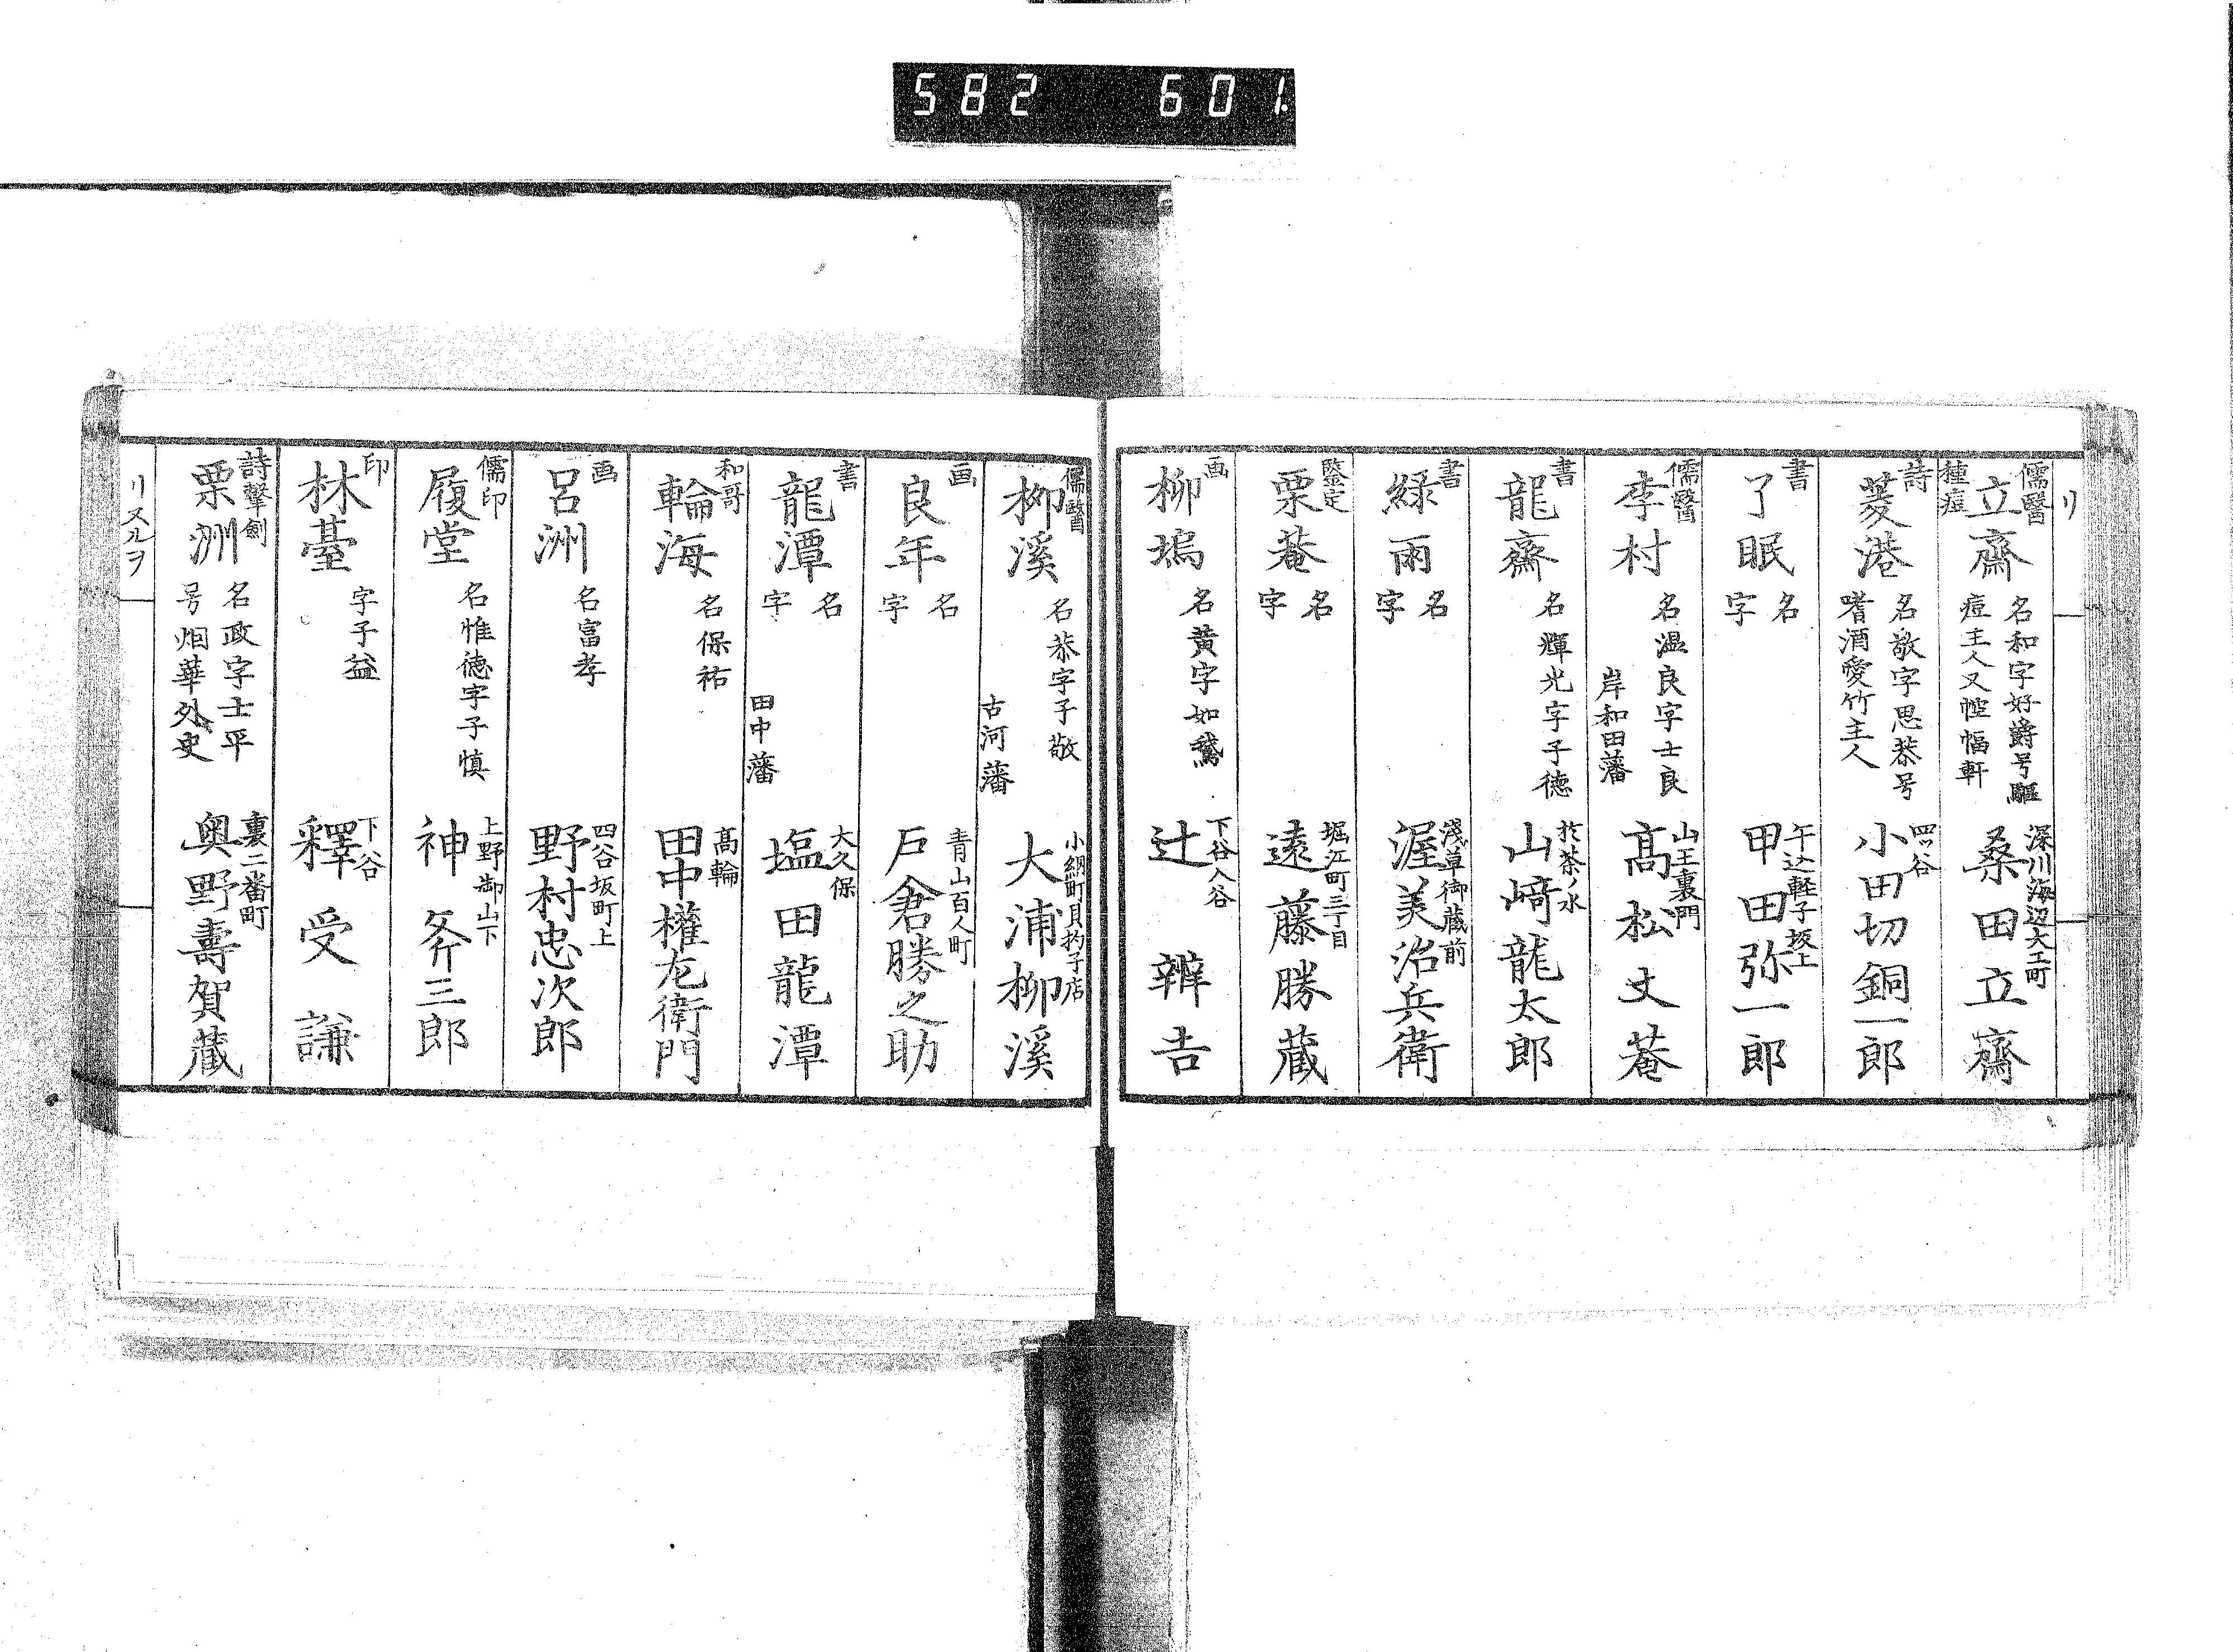 582 601
リ
儒醫
種痘
立齋
名和字好爵号驅
痘主人又悾愊軒
深川海辺大工町
桑田立齋
詩
菱港
名敬字思恭号
嗜酒愛竹主人
四ッ谷
小田切銅一郎
書
了眠
名
字
牛込軽子坂上
甲田弥一郎
儒醫
李村
名温良字士良
岸和田藩
山王裏門
髙松丈菴
書
龍齋
名輝光字子德
於茶ノ水
山﨑龍太郎
書
緑雨
名
字
淺草御蔵前
渥美治兵衛
鑒定
栗菴
名
字
堀江町三丁目
遠藤勝蔵
画
柳塢
名黄字如鵞
下谷入谷
辻辨吉
儒醫
柳溪
名恭字子敬
古河藩
小綱町貝杓子店
大浦柳溪
画
良年
名
字
青山百人町
戸倉勝之助
書
龍潭
名
字
田中藩
大久保
塩田龍潭
和哥
輪海
名保祐
髙輪
田中權左衛門
画
呂洲
名富孝
四谷坂町上
野村忠次郎
儒印
履堂
名惟德字子慎
上野御山下
神斧三郎
印
林臺
字子益
下谷
釋受謙
詩擊劍
栗洲
名政字士平
号烟華外史
裏二番町
奥野壽賀蔵
リヌルヲ